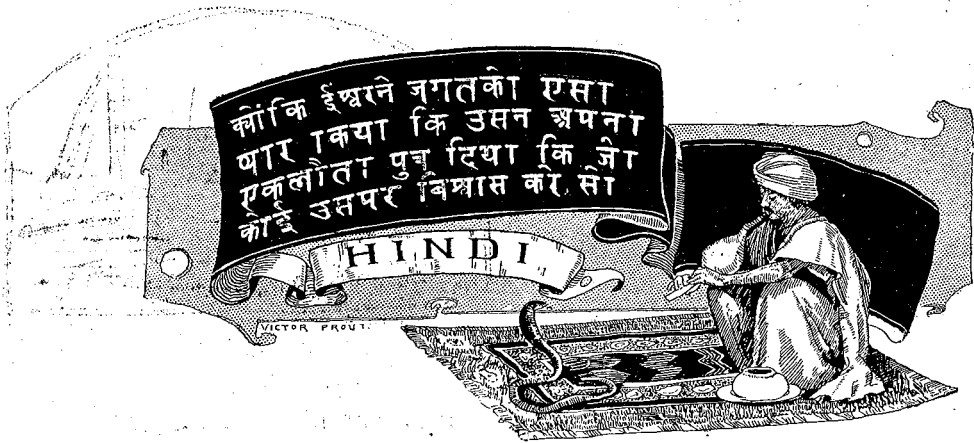 क्योंकि ईश्वरने जगतको एसा
प्यार किया कि उसन अपना
एकलौता पुत्र दिया कि जो
कोई उसपर बिश्वास करे सो
HINDI
VICTOR PROUT.